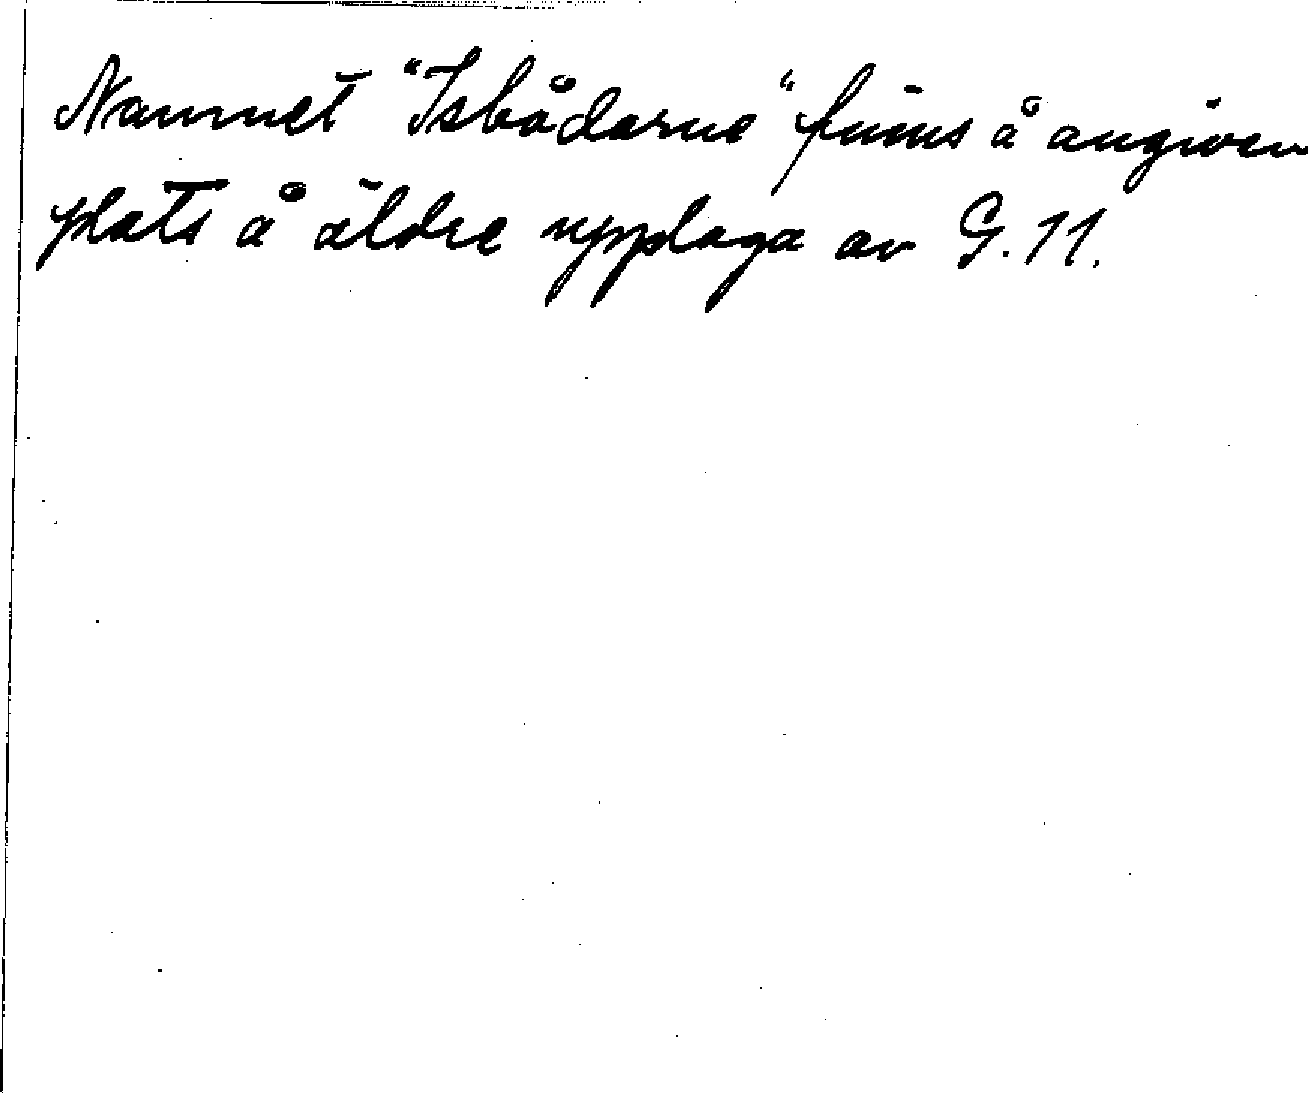 Namnet "Isbådarne" finns å angiven
plats å äldre upplaga av G. 11.